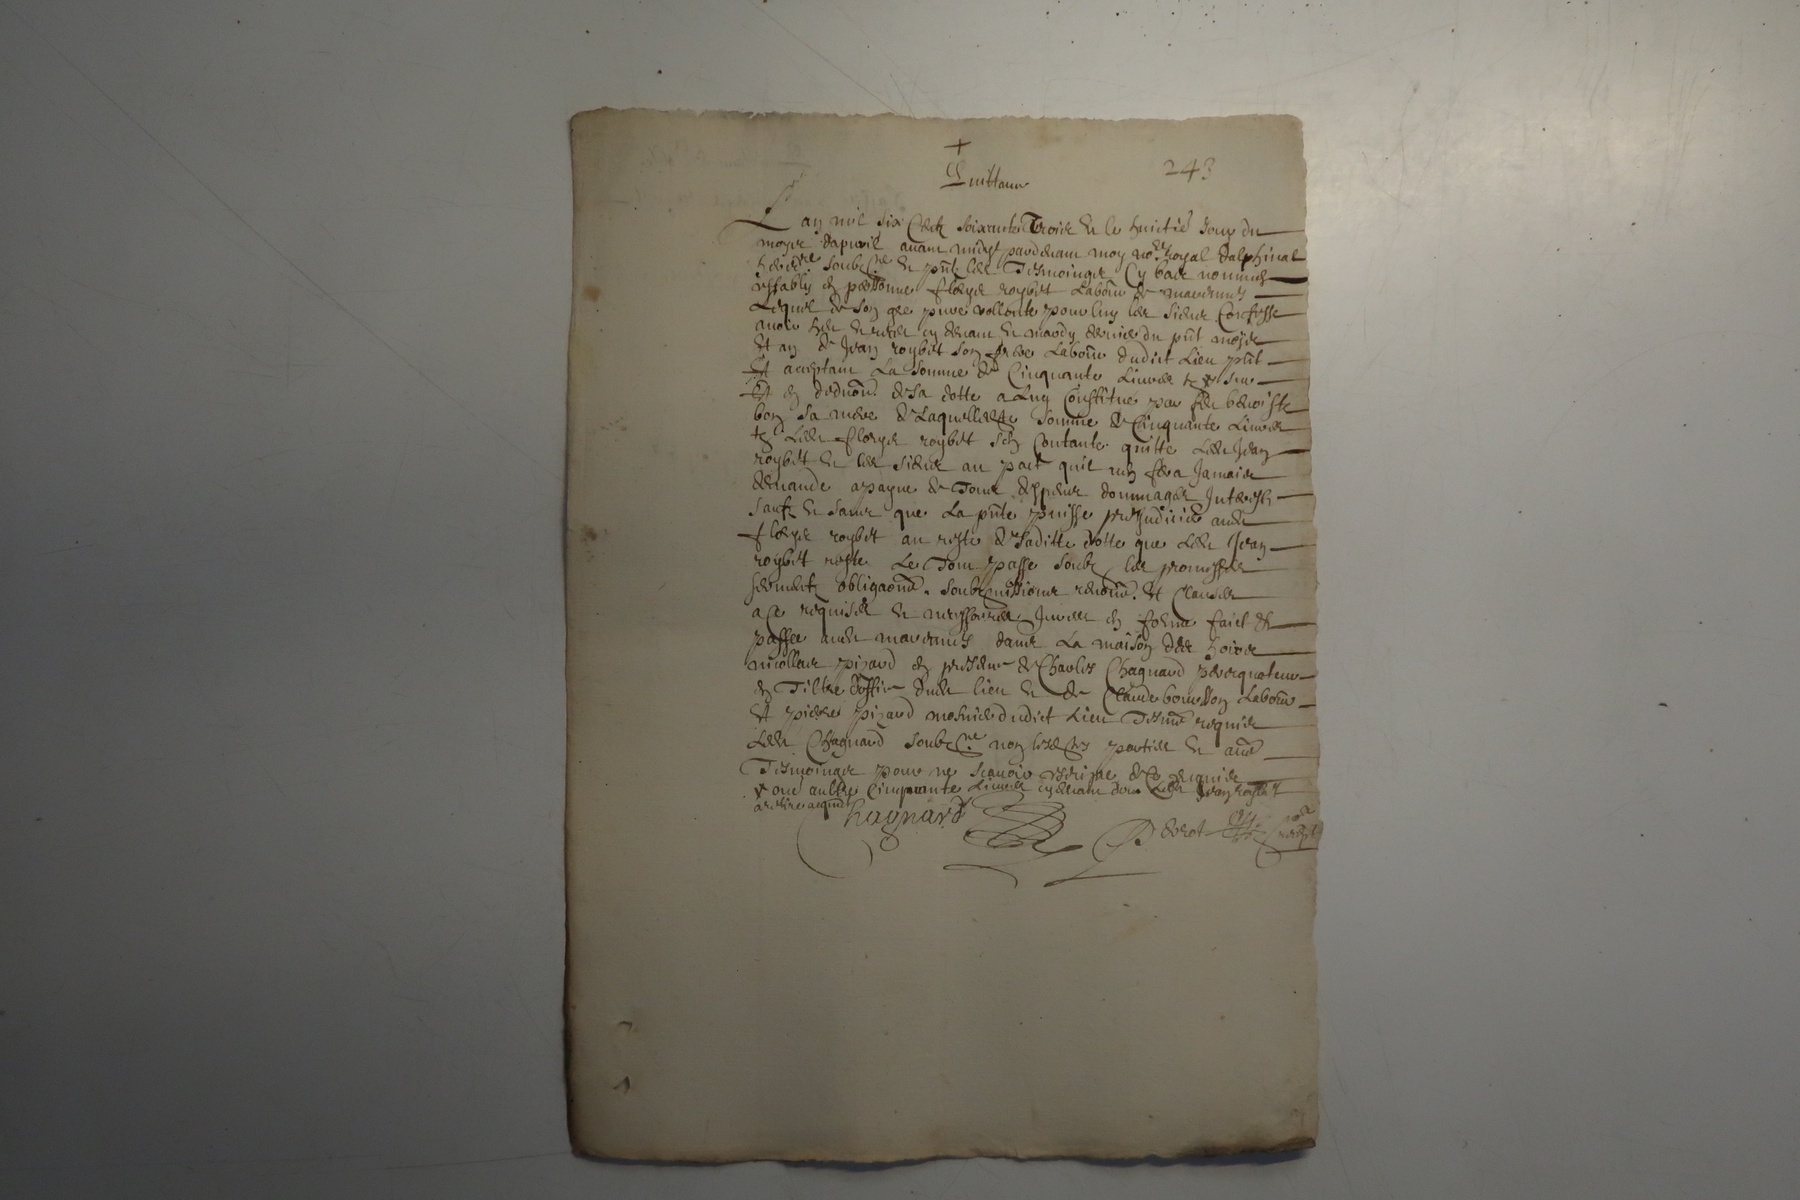 +
243
Quittance
Lan mil six Centz soixante Trois et le huictie Jour du
moys dapvril avant midy pardevant moy no.re Royal dalphinal
hered.re soubz.ne et pnt les Tesmoingz Cy bas nommes
estably en personne Cleyze roybet Labour de
Lequel de son gre pure vollonte pour luy les siens Confesse
avoir heu et receu cy devant et mardy dernier du pnt moys
et an de Jean roybet son frere Labour dudict Lieu pnt
et acceptant La somme de Cinquante Livres tz
Et en deduon de sa dotte a Luy Constitue par
bon sa mere de Laquelle somme de Cinquante Livres
tz Led roybet sen Contante quitte Led Jean
roybet et les siens au pact quil nen fera Jamais
demande apayne de Tous despens dommages Interestz
sauf et sans que La pnte puisse prejudicier aud
roybet au reste de Saditte dotte que Led Jean
roybet reste Le Tout passe soubz les promesses
sermentz obligaons. soubzmissions renons. et Clauses
a Ce requises et necessaires Jurees en forme faict et
passe aud dans La maison des hoirs
nicollas pizard en presence de Charles Chagnard perequateur
en Tiltre doffice dud lieu et de Claude Labour
et pierre pizard mosnier dudict Lieu Tesms requis
Led Chagnard soubz.ne non lesd parties et au.e
Tesmoingz pour ne scavoir escripre de Ce requis
oud aultre Cinquante Livres cy devant Led Jean roybet
Chagnard
no.re